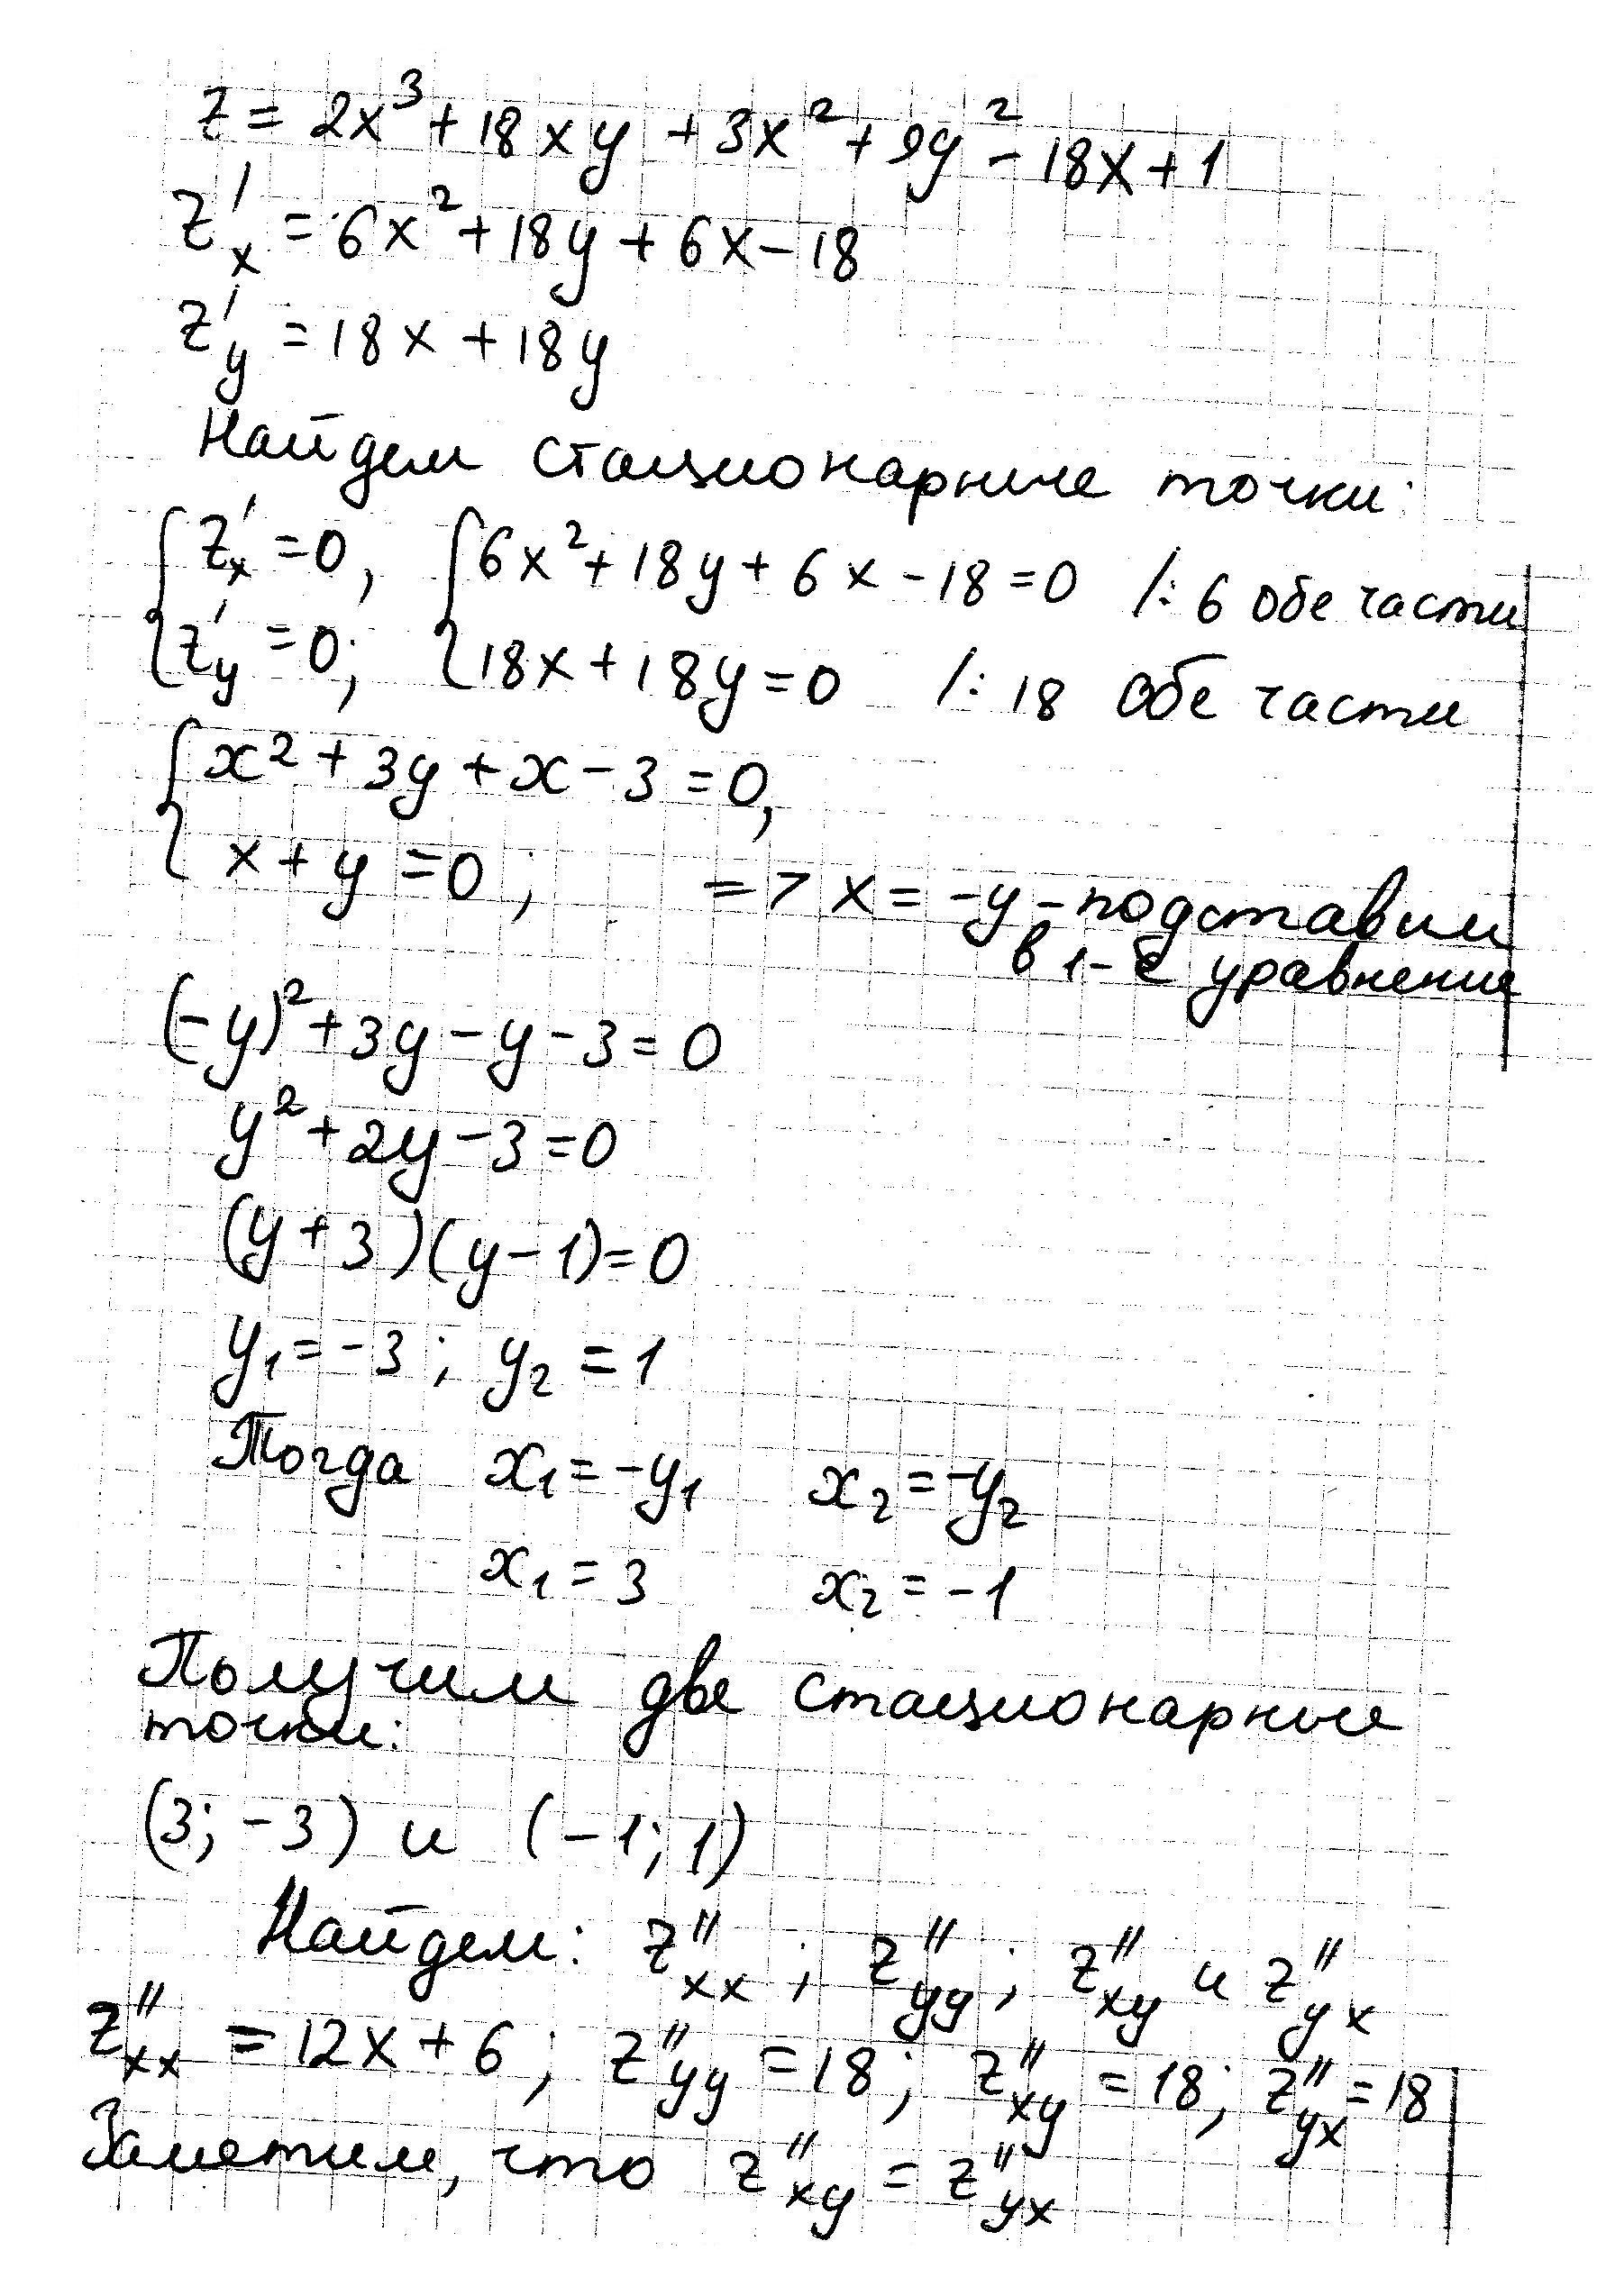 z = 2x³ + 18xy + 3x² + 9y² - 18x + 1
z'ₓ = 6x² + 18y + 6x - 18
z'_y = 18x + 18y
Найдем стационарные точки:
{ z'ₓ = 0, { 6x² + 18y + 6x - 18 = 0 /: 6 обе части
{ z'_y = 0; { 18x + 18y = 0 /: 18 обе части
{ x² + 3y + x - 3 = 0,
{ x + y = 0; => x = -y - подставим
в 1-е уравнение
(-y)² + 3y - y - 3 = 0
y² + 2y - 3 = 0
(y + 3)(y - 1) = 0
y₁ = -3; y₂ = 1
Тогда x₁ = -y₁ x₂ = -y₂
x₁ = 3 x₂ = -1
Получим две стационарные
точки:
(3; -3) и (-1; 1)
Найдем: z''ₓₓ; z''_yy; z''_xy и z''_yx
z''ₓₓ = 12x + 6; z''_yy = 18; z''_xy = 18; z''_yx = 18
Заметим, что z''_xy = z''_yx